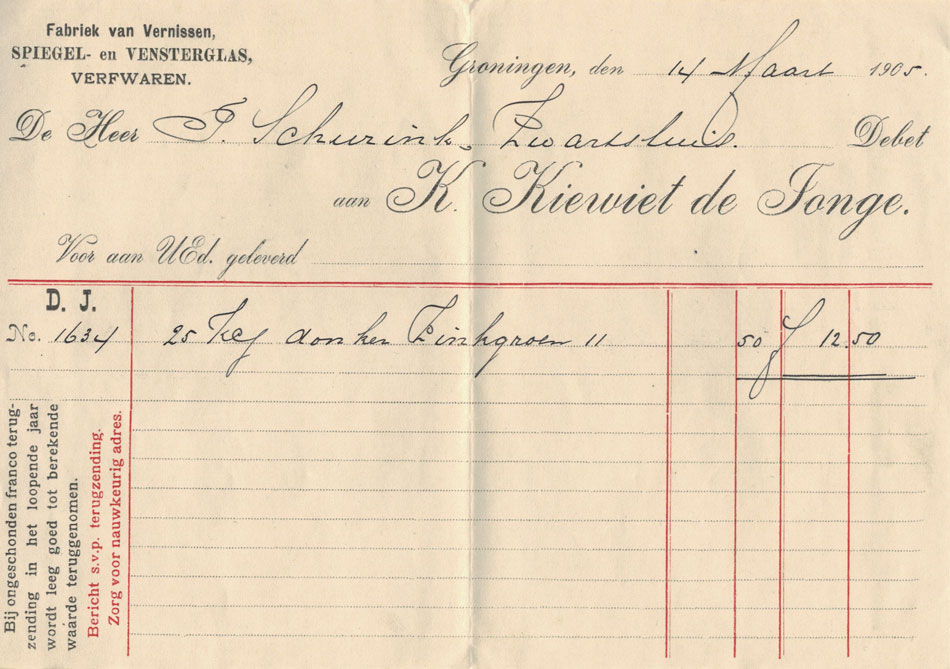 Fabriek van Vernissen,
SPIEGEL- en VENSTERGLAS,
VERFWAREN.
Groningen, den 14 Maart 1905.
De Heer J. Schurink. Zwartsluis. Debet
aan K. Kiewiet de Jonge.
Voor aan UEd. geleverd
D. J.
No. 1634 25 Kg donker Zinkgroen 11 50 f 12.50
Bij ongeschonden franco terug-
zending in het loopende jaar
wordt leeg goed tot berekende
waarde teruggenomen.
Bericht s.v.p. terugzending.
Zorg voor nauwkeurig adres.